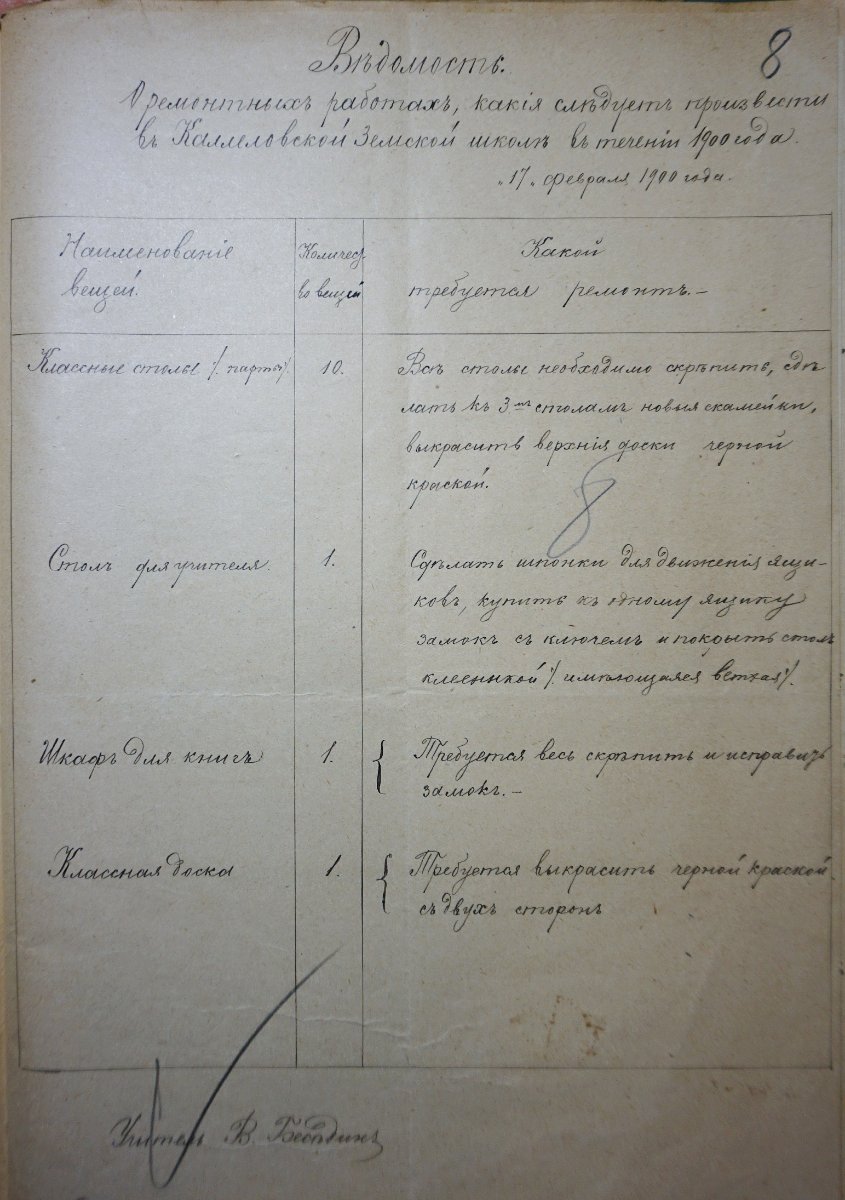 8
Вѣдомость.
О ремонтныхъ работахъ, какія слѣдуетъ произвести
въ Каллеловской Земской школѣ въ теченіи 1900 года.
„17„ февраля 1900 года.
Наименованіе
вещей.
Количест-
во вещей
Какой
требуется ремонтъ.—
Классные столы /. парты/.
10.
Всѣ столы необходимо скрѣпить, сдѣ
лать къ 3мъ столамъ новыя скамейки,
выкрасить верхнія доски черной
краской.
8
Столъ для учителя.
1.
Сдѣлать шпонки для движенія ящи-
ковъ, купить къ одному ящику
замокъ съ ключемъ и покрыть столъ
клеенкой /. имѣющаяся ветхая/.
Шкафъ для книгъ
1.
Требуется весь скрѣпить и исправить
замокъ.—
Классная доска
1.
Требуется выкрасить черной краской
съ двухъ сторонъ
Учитель В. Бесѣдинъ